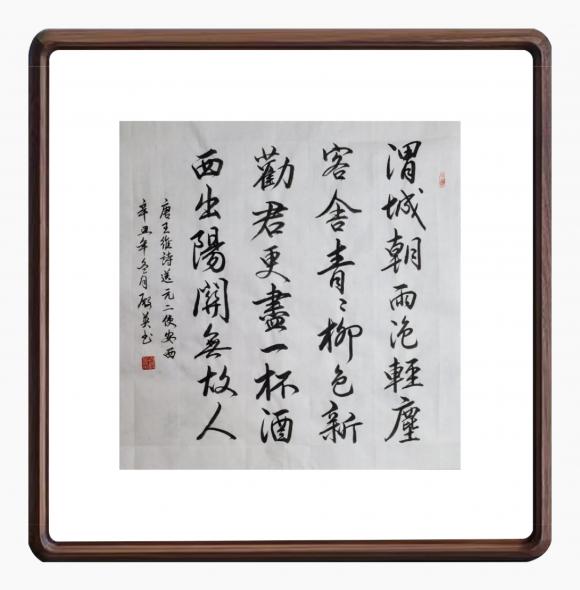 渭城朝雨浥輕塵
客舍青〻柳色新
勸君更盡一杯酒
西出陽關無故人
唐王維詩送元二使安西
辛丑年冬月 英书